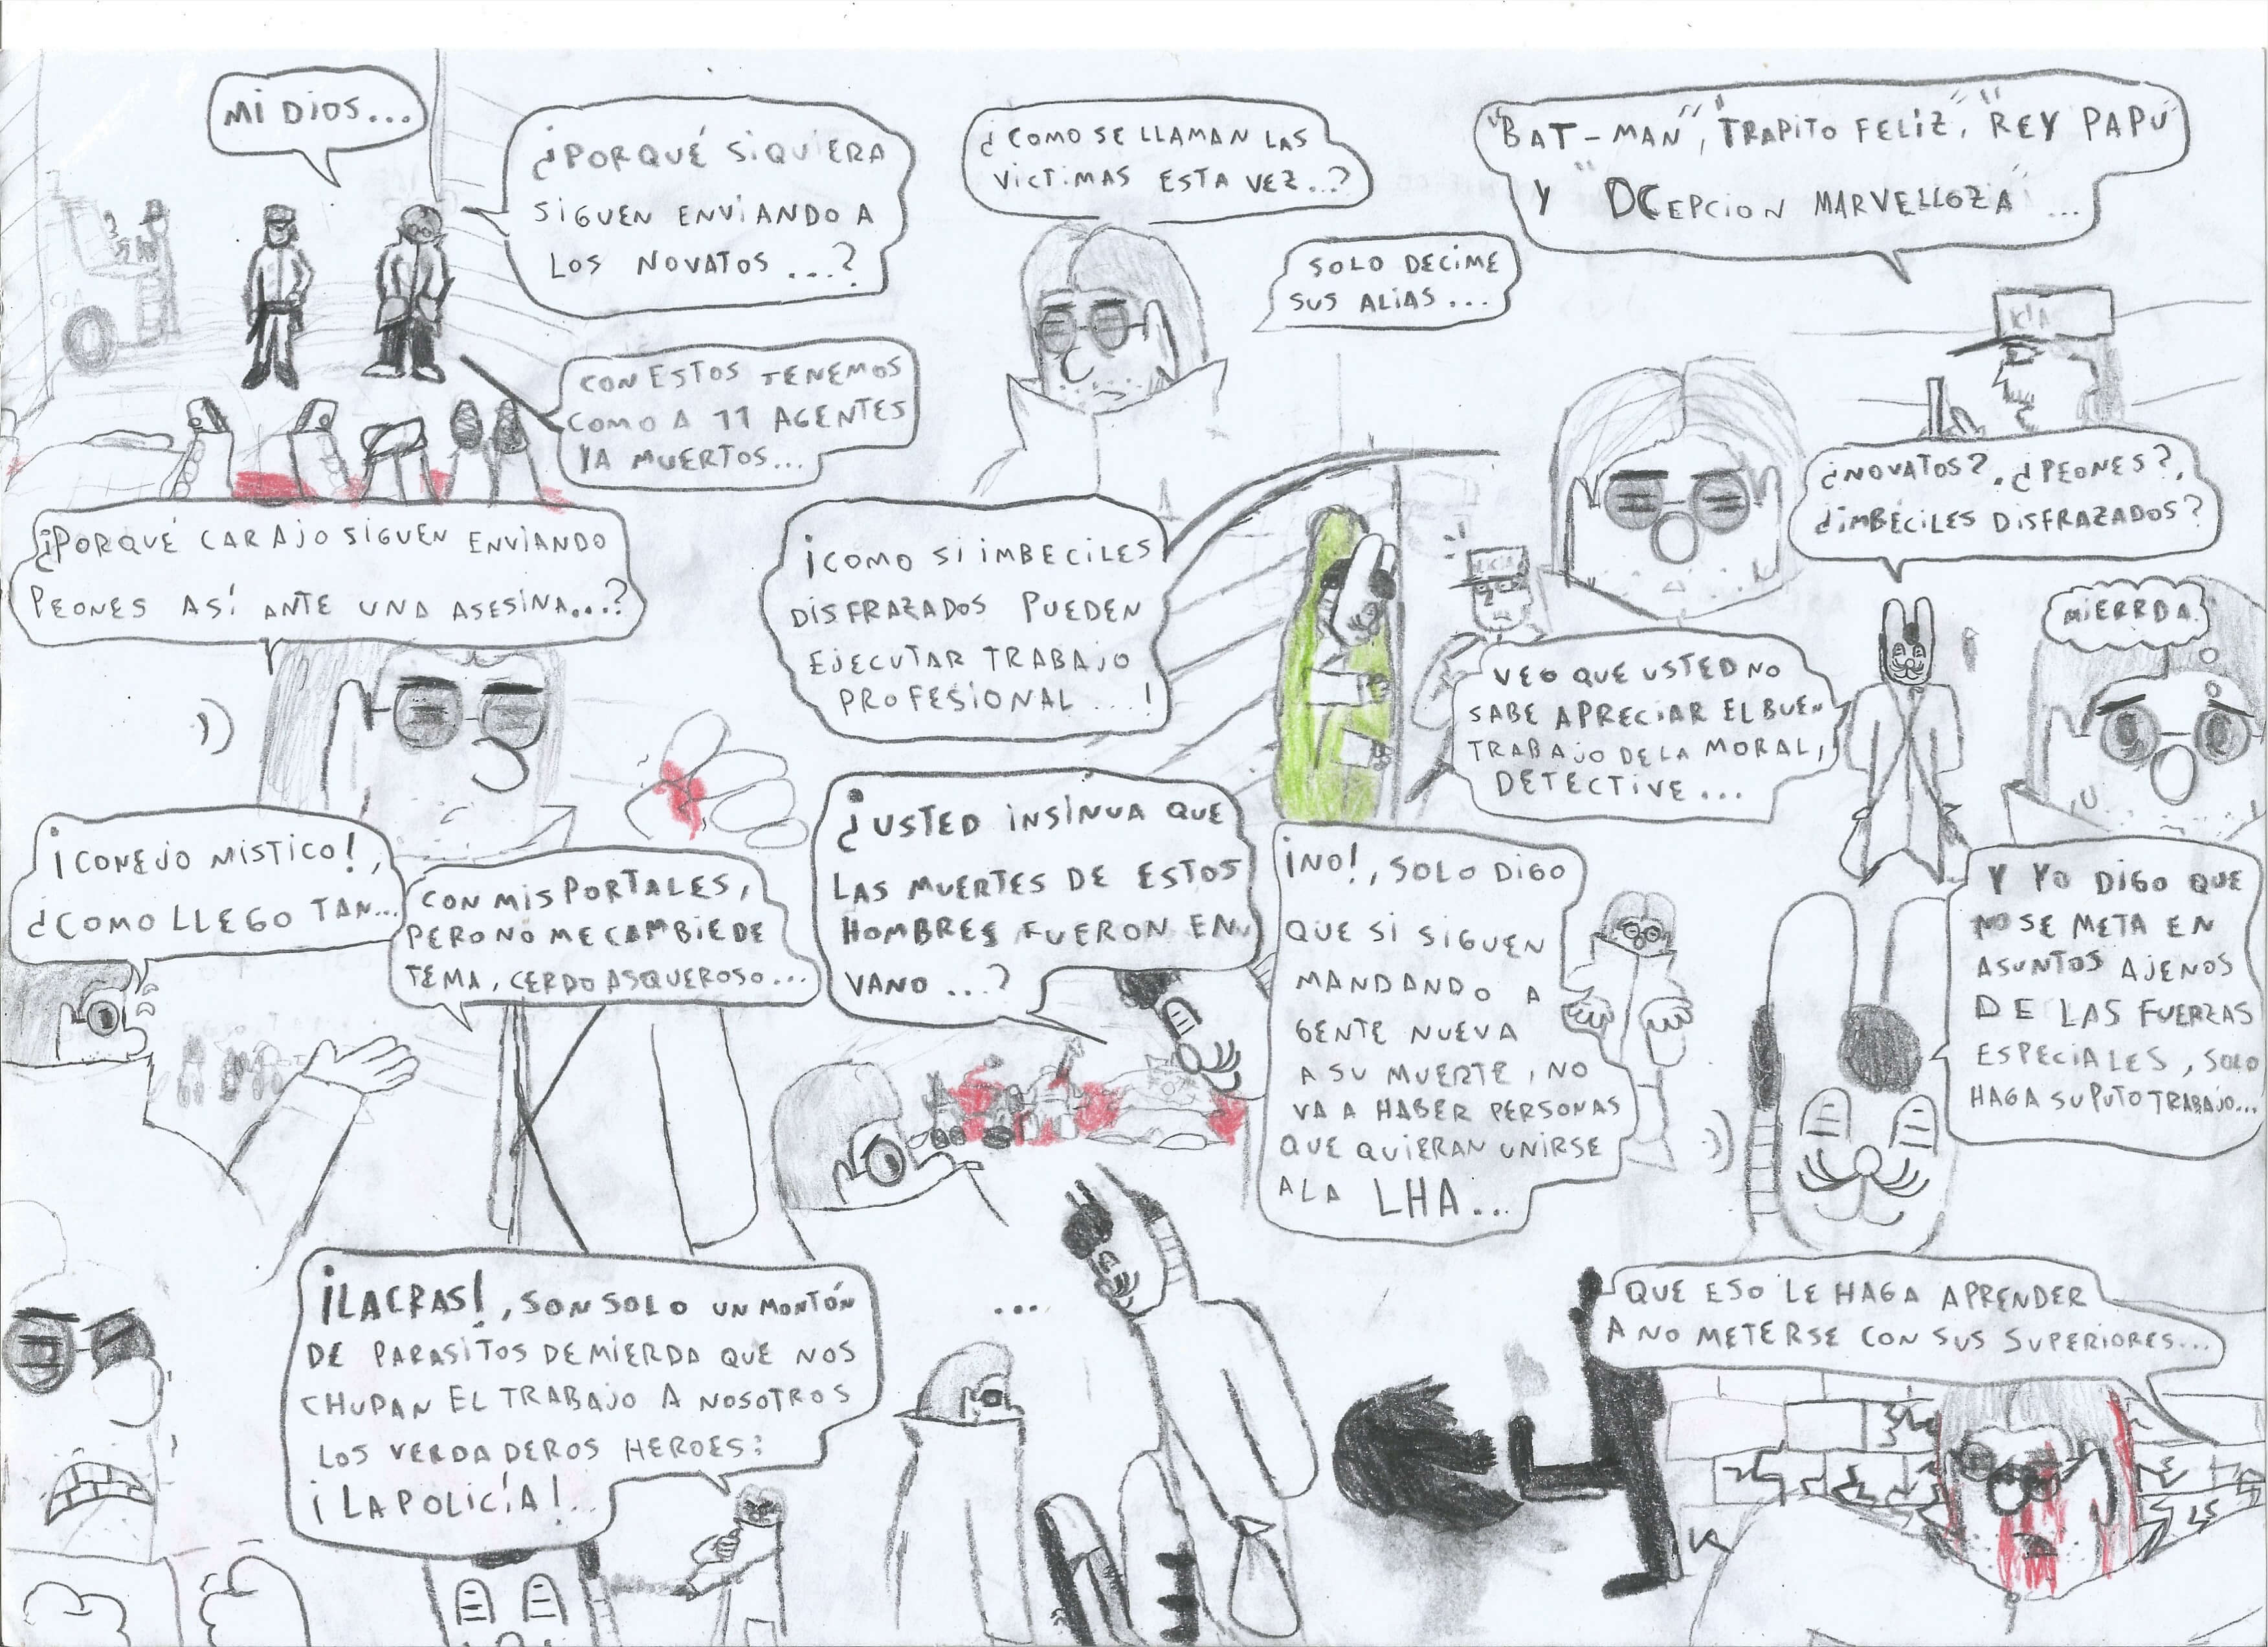 MI DIOS...
¿PORQUÉ SIQUIERA
SIGUEN ENVIANDO A
LOS NOVATOS ...?
CON ESTOS TENEMOS
COMO A 11 AGENTES
YA MUERTOS...
¿COMO SE LLAMAN LAS
VICTIMAS ESTA VEZ...?
SOLO DECIME
SUS ALIAS...
"BAT-MAN", "TRAPITO FELIZ", "REY PAPU"
Y "DCEPCION MARVELLOZA" ...
¿PORQUÉ CARAJO SIGUEN ENVIANDO
PEONES ASÍ ANTE UNA ASESINA...?
¡COMO SI IMBECILES
DISFRAZADOS PUEDEN
EJECUTAR TRABAJO
PROFESIONAL ...!
¿NOVATOS?, ¿PEONES?,
¿IMBECILES DISFRAZADOS?
VEO QUE USTED NO
SABE APRECIAR EL BUEN
TRABAJO DE LA MORAL,
DETECTIVE...
MIERRDA.
¡CONEJO MISTICO!,
¿COMO LLEGO TAN...
CON MIS PORTALES,
PERO NO ME CAMBIE DE
TEMA, CERDO ASQUEROSO...
¿USTED INSINUA QUE
LAS MUERTES DE ESTOS
HOMBRES FUERON EN
VANO ...?
¡NO!, SOLO DIGO
QUE SI SIGUEN
MANDANDO A
GENTE NUEVA
A SU MUERTE, NO
VA A HABER PERSONAS
QUE QUIERAN UNIRSE
A LA LHA...
Y YO DIGO QUE
NO SE META EN
ASUNTOS AJENOS
DE LAS FUERZAS
ESPECIALES, SOLO
HAGA SU PUTO TRABAJO...
¡LACRAS!, SON SOLO UN MONTÓN
DE PARASITOS DE MIERDA QUE NOS
CHUPAN EL TRABAJO A NOSOTROS
LOS VERDADEROS HEROES:
¡LA POLICÍA!...
...
QUE ESO LE HAGA APRENDER
A NO METERSE CON SUS SUPERIORES...